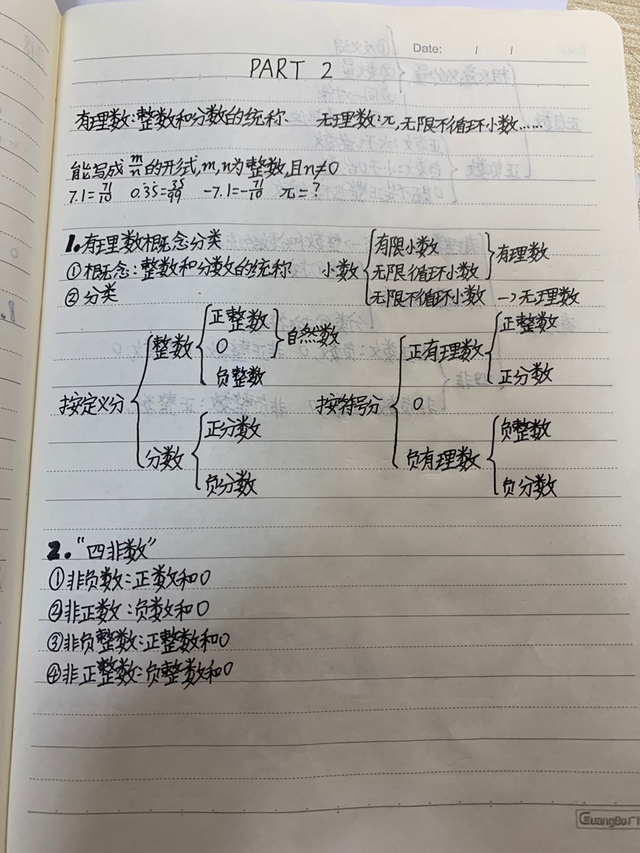 Date: / /
PART 2
有理数:整数和分数的统称. 无理数:π,无限不循环小数……
能写成m/n的形式,m,n为整数,且n≠0
7.1=71/10 0.3̇5̇=35/99 -7.1=-71/10 π=?
1.有理数概念分类
①概念:整数和分数的统称
②分类
小数{有限小数 无限循环小数}有理数
无限不循环小数→无理数
按定义分
整数{正整数 0}自然数
负整数
分数{正分数
负分数
按符号分
正有理数{正整数
正分数
0
负有理数{负整数
负分数
2."四非数"
①非负数:正数和0
②非正数:负数和0
③非负整数:正整数和0
④非正整数:负整数和0
GuangBo广